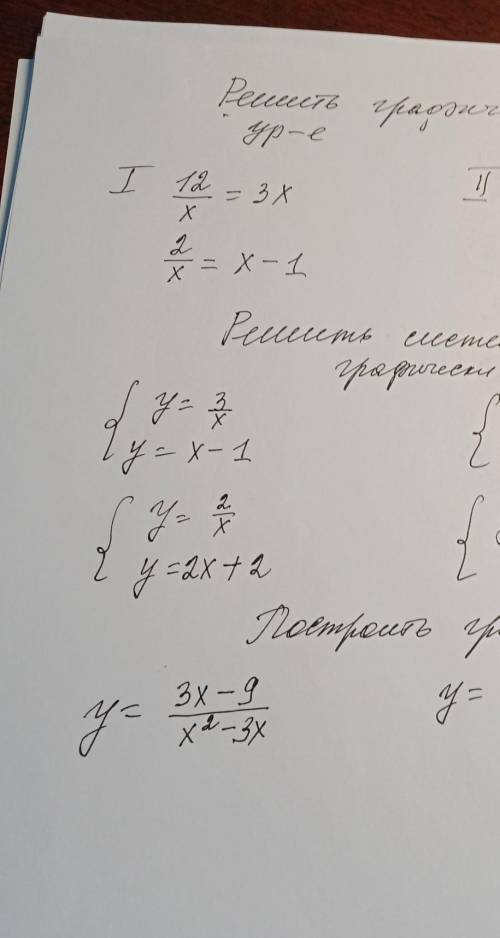 Решить графич
ур-е
I 12/x = 3x
II
2/x = x - 1
Решить систе
графически
{ y = 3/x
y = x - 1
{
{ y = 2/x
y = 2x + 2
{
Построить гр
y = (3x - 9)/(x² - 3x)
y =